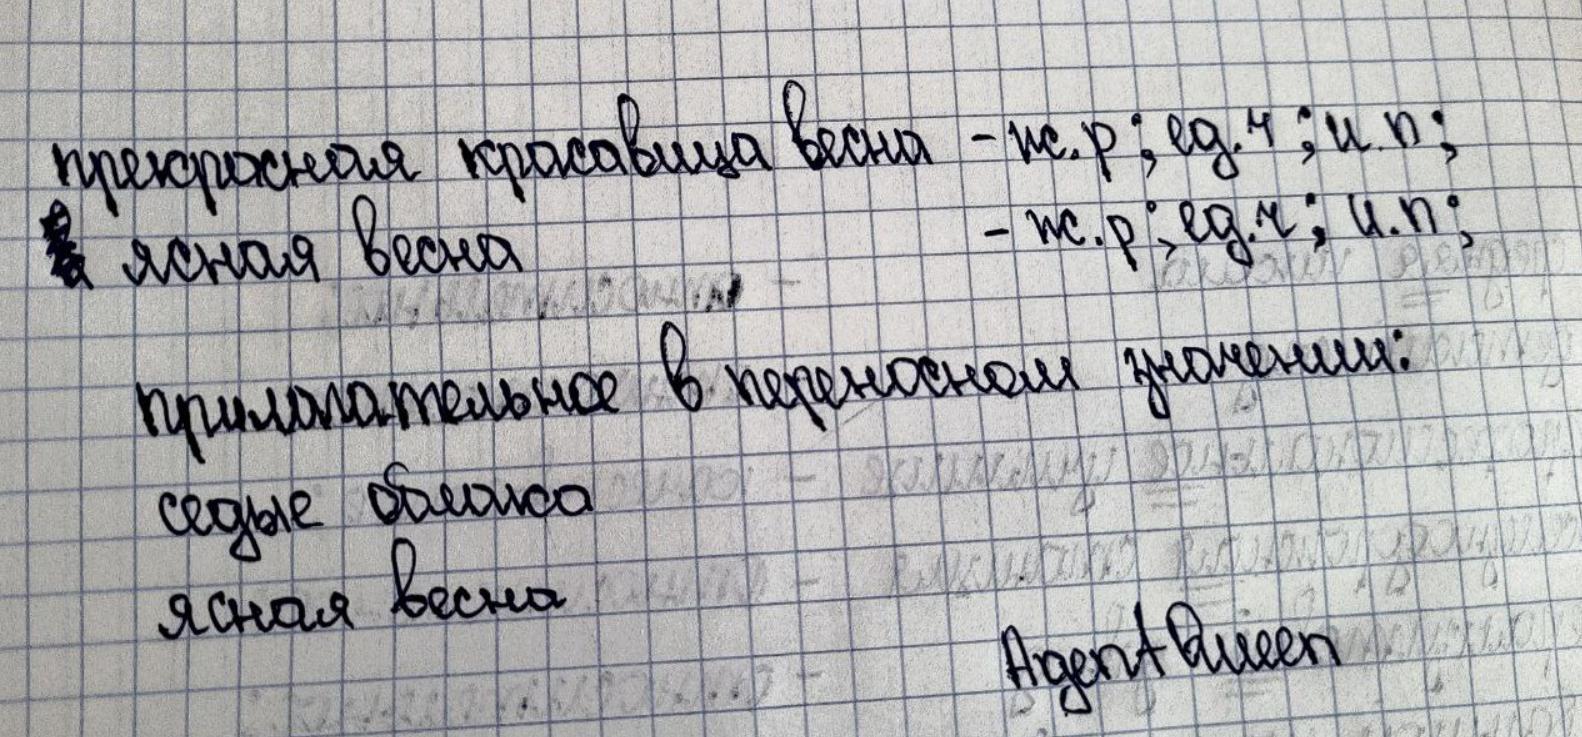 прекрасная красавица весна - ж.р; ед.ч; и.п;
ясная весна - ж.р; ед.ч; и.п;
прилагательное в переносном значении:
седые облака
ясная весна
AgentQueen